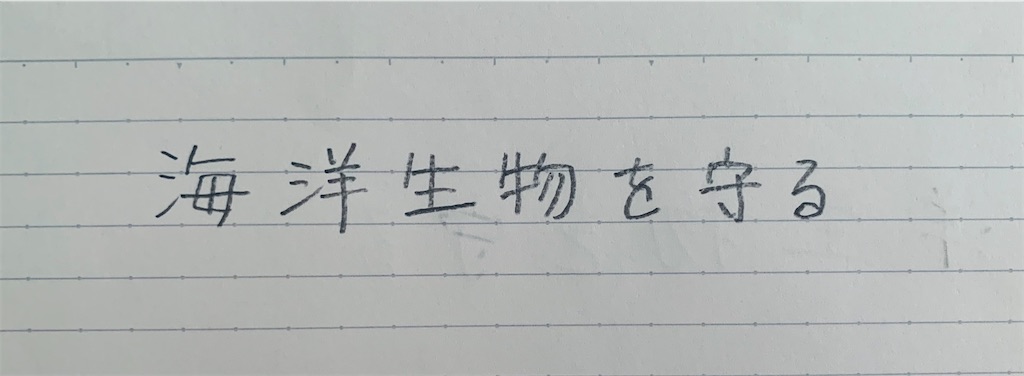 海洋生物を守る